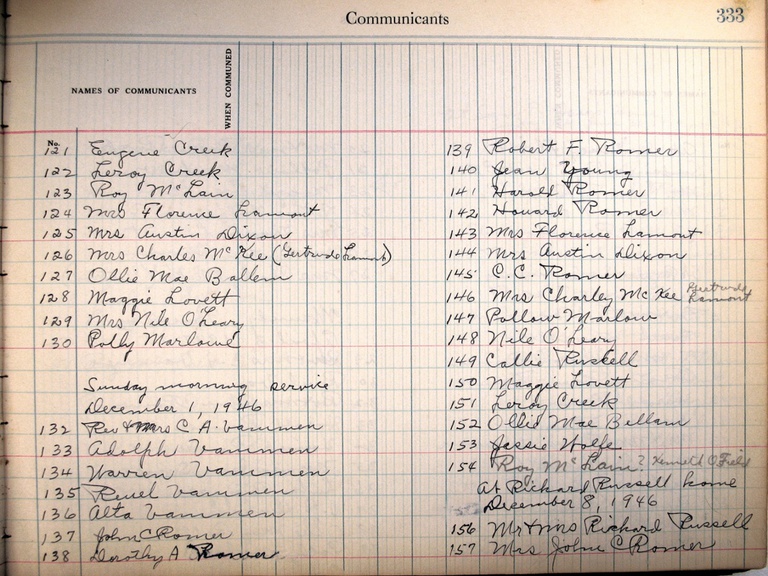 Communicants
333
NAMES OF COMMUNICANTS
WHEN COMMUNED
No.
121 Eugene Creek
122 Leroy Creek
123 Roy McLain
124 Mrs Florence Lamont
125 Mrs Austin Dixon
126 Mrs Charles McKee (Gertrude Lamont)
127 Ollie Mae Ballem
128 Maggie Lovett
129 Mrs Nile O'Leary
130 Polly Marlowe
Sunday morning service
December 1, 1946
132 Rev & Mrs C A. Vammen
133 Adolph Vammen
134 Warren Vammen
135 Reuel Vammen
136 Alta Vammen
137 John C Romer
138 Dorothy A Romer
139 Robert F. Romer
140 Jean Young
141 Harold Romer
142 Howard Romer
143 Mrs Florence Lamont
144 Mrs Austin Dixon
145 C.C. Romer
146 Mrs Charley McKee Gertrude Lamont
147 Pollow Marlow
148 Nile O'Leary
149 Callie Russell
150 Maggie Lovett
151 Leroy Creek
152 Ollie Mae Bellam
153 Jessie Wolfe
154 Roy McLain? Kenneth O'Field
At Richard Russell home
December 8, 1946
156 Mr & Mrs Richard Russell
157 Mrs John C Romer